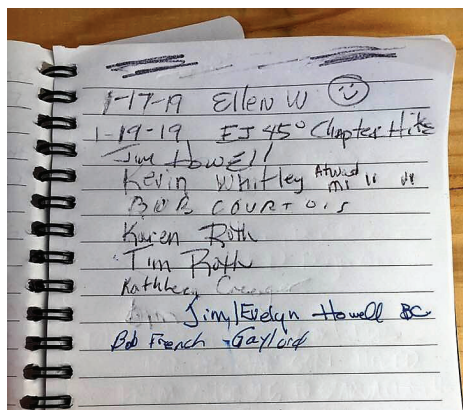 1-17-19 Ellen W
1-19-19 EJ 45° Chapter Hike
Jim Howell
Kevin Whitley Atwood MI
BOB COURTOIS
Karen Roth
Tim Roth
Kathleen
Jim/Evelyn Howell BC
Bob French - Gaylord